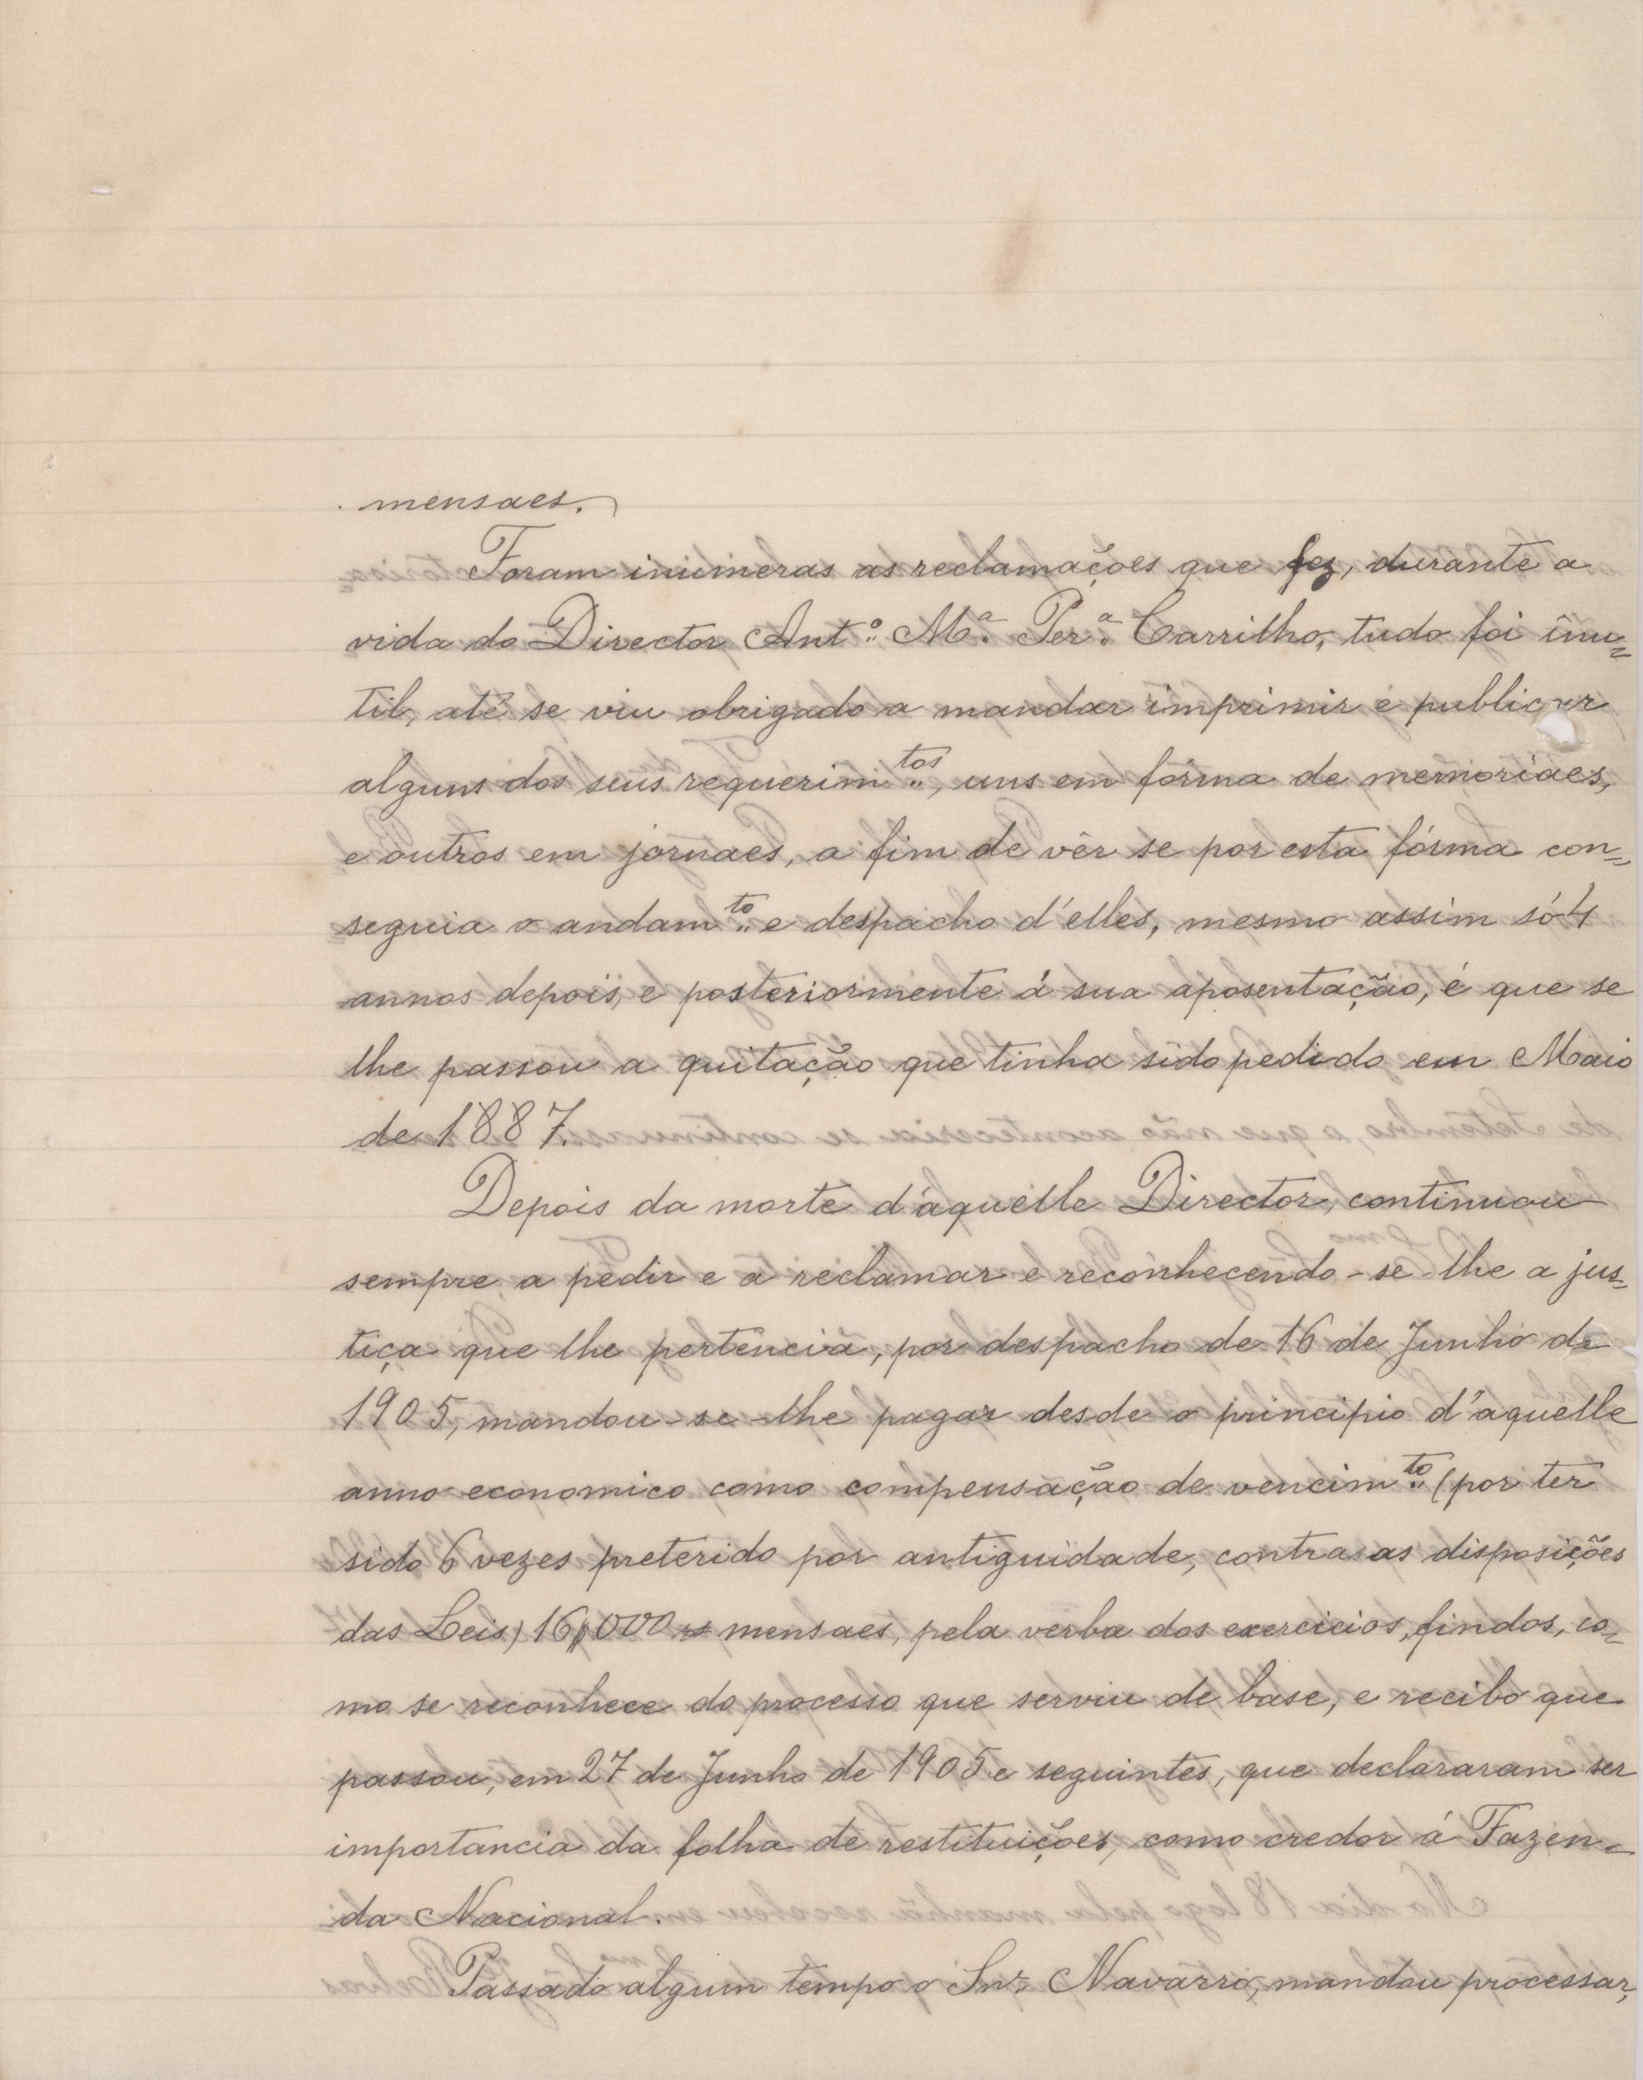 mensaes.
Foram inumeras as reclamações que fez, durante a
vida do Director Antº. Mª. Perª. Carrilho, tudo foi inu=
til, até se viu obrigado a mandar imprimir e publicar
alguns dos seus requerimtos., uns em fórma de memoriaes,
e outros em jornaes, a fim de vêr se por esta fórma con=
seguia o andamto. e despacho d'elles, mesmo assim só 4
annos depois, e posteriormente á sua aposentação, é que se
lhe passou a quitação que tinha sido pedido em Maio
de 1887.
Depois da morte d'aquelle Director, continuou
sempre a pedir e a reclamar e reconhecendo-se-lhe a jus=
tiça que lhe pertencia, por despacho de 16 de Junho de
1905, mandou-se-lhe pagar desde o principio d'aquelle
anno economico como compensação de vencimto. (por ter
sido 6 vezes preterido por antiguidade, contra as disposições
das Leis) 16$000 rs mensaes, pela verba dos exercicios, findos, co=
mo se reconhece do processo que serviu de base, e recibo que
passou, em 27 de Junho de 1905 e seguintes, que declararam ser
importancia da folha de restituições, como credor á Fazen=
da Nacional.
Passado algum tempo o Snr. Navarro, mandou processar,